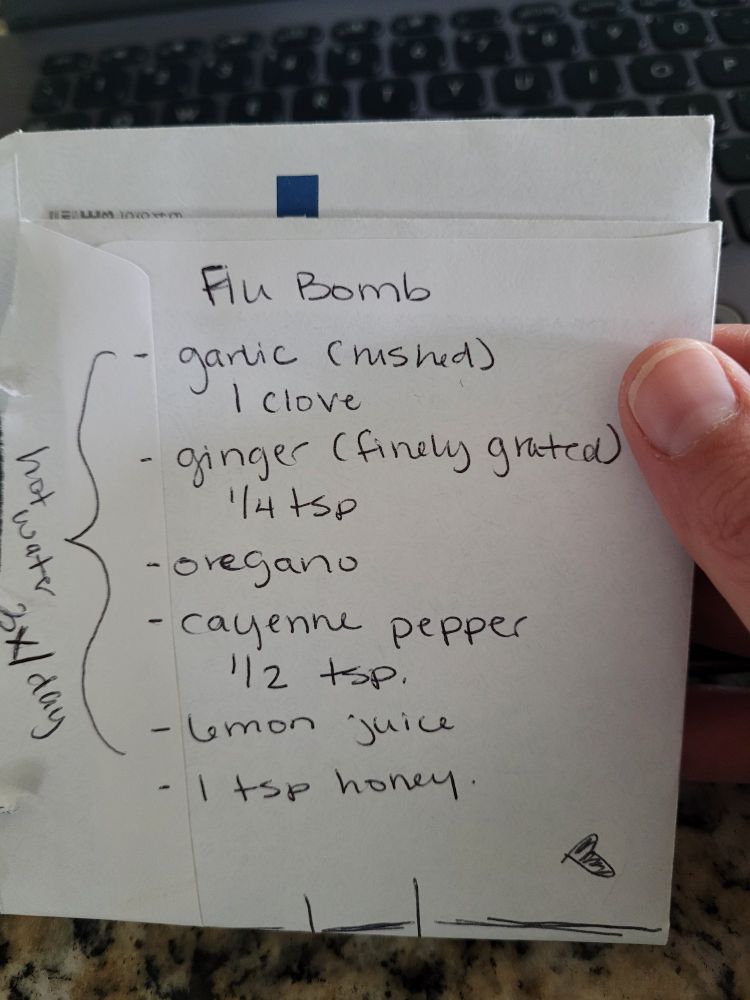 Flu Bomb
- garlic (crushed)
1 clove
- ginger (finely grated)
1/4 tsp
- oregano
- cayenne pepper
1/2 tsp.
- lemon juice
- 1 tsp honey.
hot water
3x/day